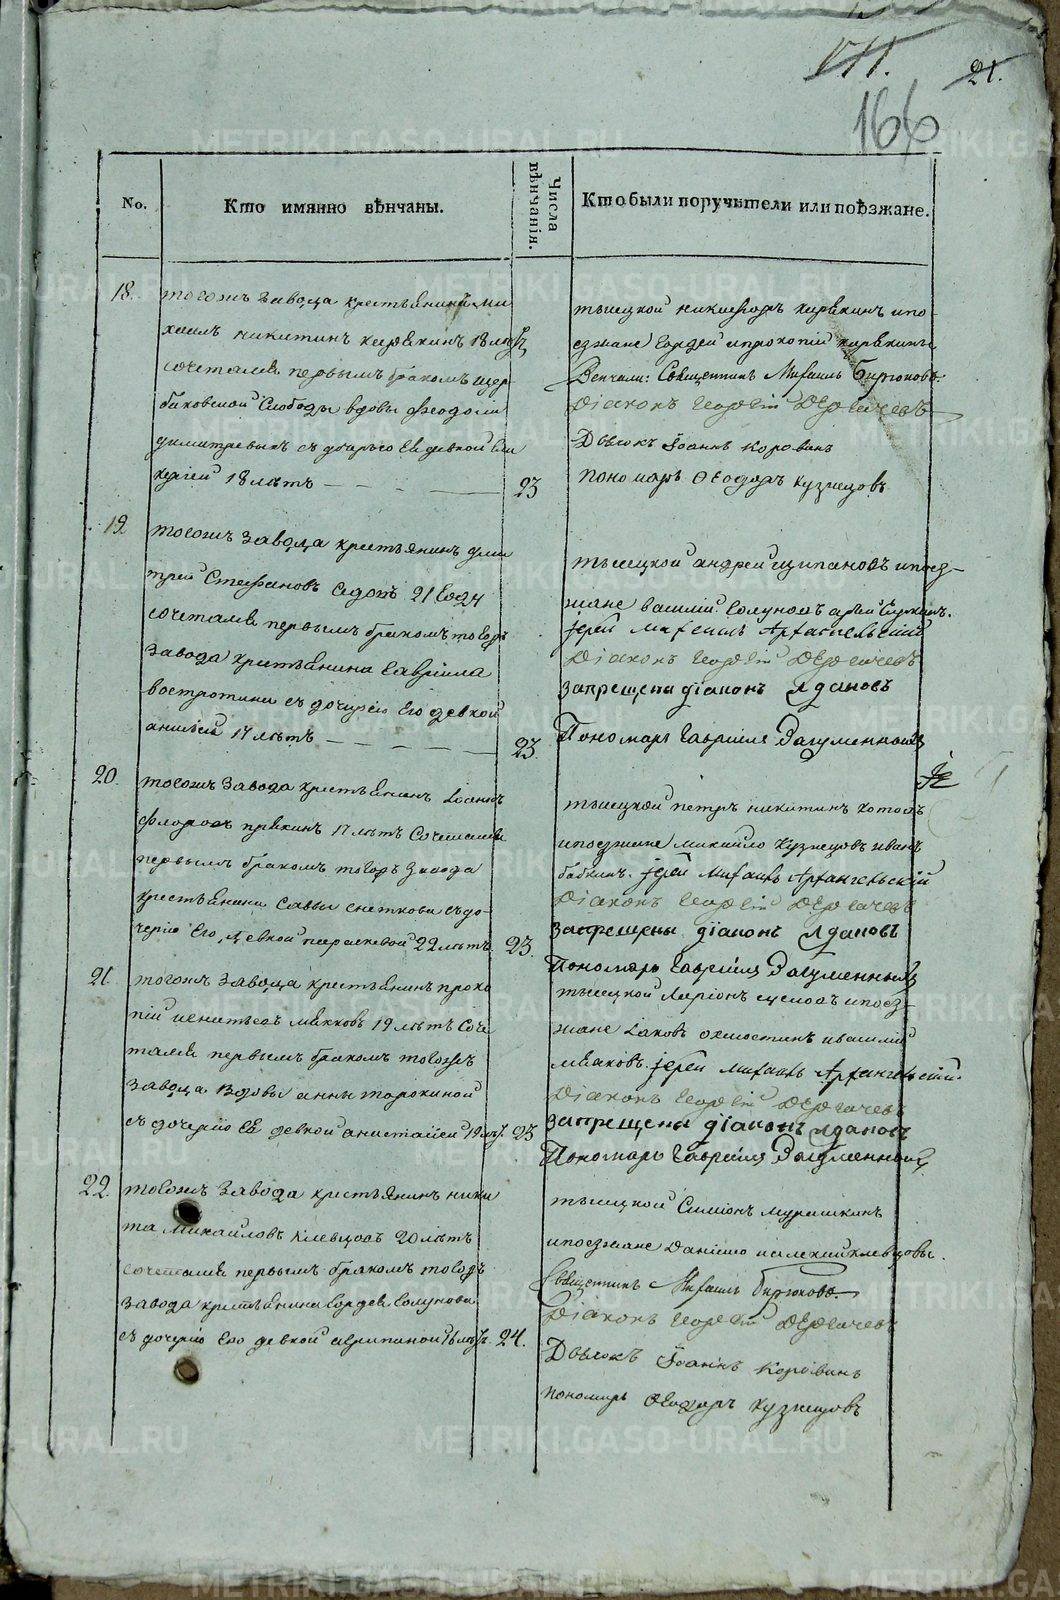 VII.
21.
166
No.
Кто имянно вѣнчаны.
Числа вѣнчанія.
Кто были поручители или поѣзжане.
18.
тогожъ завода крестьянинъ ми
хаилъ никитинъ 18 лѣтъ
сочетался первымъ бракомъ щер
баковской Слободы вдовы феодосіи
димитревыхъ съ дочерью Ея девкой
18 летъ
23
тысяцкой никифоръ ипо
езжане прокопій
Венчали: Священникъ Михаилъ Бирюковъ.
Діаконъ Георгій Дергачевъ
Дьячокъ Іоаннъ Коровинъ
пономарь Ѳеодоръ Кузнецовъ
19.
тогожъ завода крестьянинъ дми
трей Стефановъ 21 году
сочетался первымъ бракомъ тогожъ
завода крестьянина Гавріила
востротина съ дочерью Его девкой
17 летъ
23.
тысяцкой андрей щипановъ ипоез-
жане василій Голуновъ
іерей Михаилъ Архангельскій
Діаконъ Георгій Дергачевъ
запрещены діаконъ Ждановъ
Пономарь Гавріилъ Загуменныхъ
20.
тогожъ завода крестьянинъ
17 летъ Сочетался
первымъ бракомъ тогожъ завода
крестьянина Саввы снеткова съ до-
черью Его девкой параскевой 22 летъ
23.
тысяцкой петръ никитинъ котовъ
ипоезжане михайло Кузнецовъ иванъ
бабкинъ. іерей Михаилъ Архангельскій
Діаконъ Георгій Дергачевъ
запрещены діаконъ Ждановъ
Пономарь Гавріилъ Загуменныхъ
21.
тогожъ завода крестьянинъ проко
пій игнатьевъ 19 летъ Соче
тался первымъ бракомъ тогожъ
завода вдовы анны торокиной
съ дочерью Ея девкой анастасіей 19 летъ
23
тысяцкой Ларіонъ ипоез-
жане Іаковъ ивасилій
іерей Михаилъ Архангельскій.
Діаконъ Георгій Дергачевъ
запрещены діаконъ Ждановъ
Пономарь Гавріилъ Загуменныхъ
22.
тогожъ завода крестьянинъ ники
та михайловъ клевцовъ 20 летъ
сочетался первымъ бракомъ тогожъ
завода крестьянина Гордея Голунова
съ дочерью Его девкой агрипиной 16 летъ
24.
тысяцкой Симіонъ мурашкинъ
ипоезжане Данило иалексий клевцовы.
Священникъ Михаилъ Бирюковъ.
Діаконъ Георгій Дергачевъ
Дьячокъ Іоаннъ Коровинъ
пономарь Ѳеодоръ Кузнецовъ
METRIKI.GASO-URAL.RU